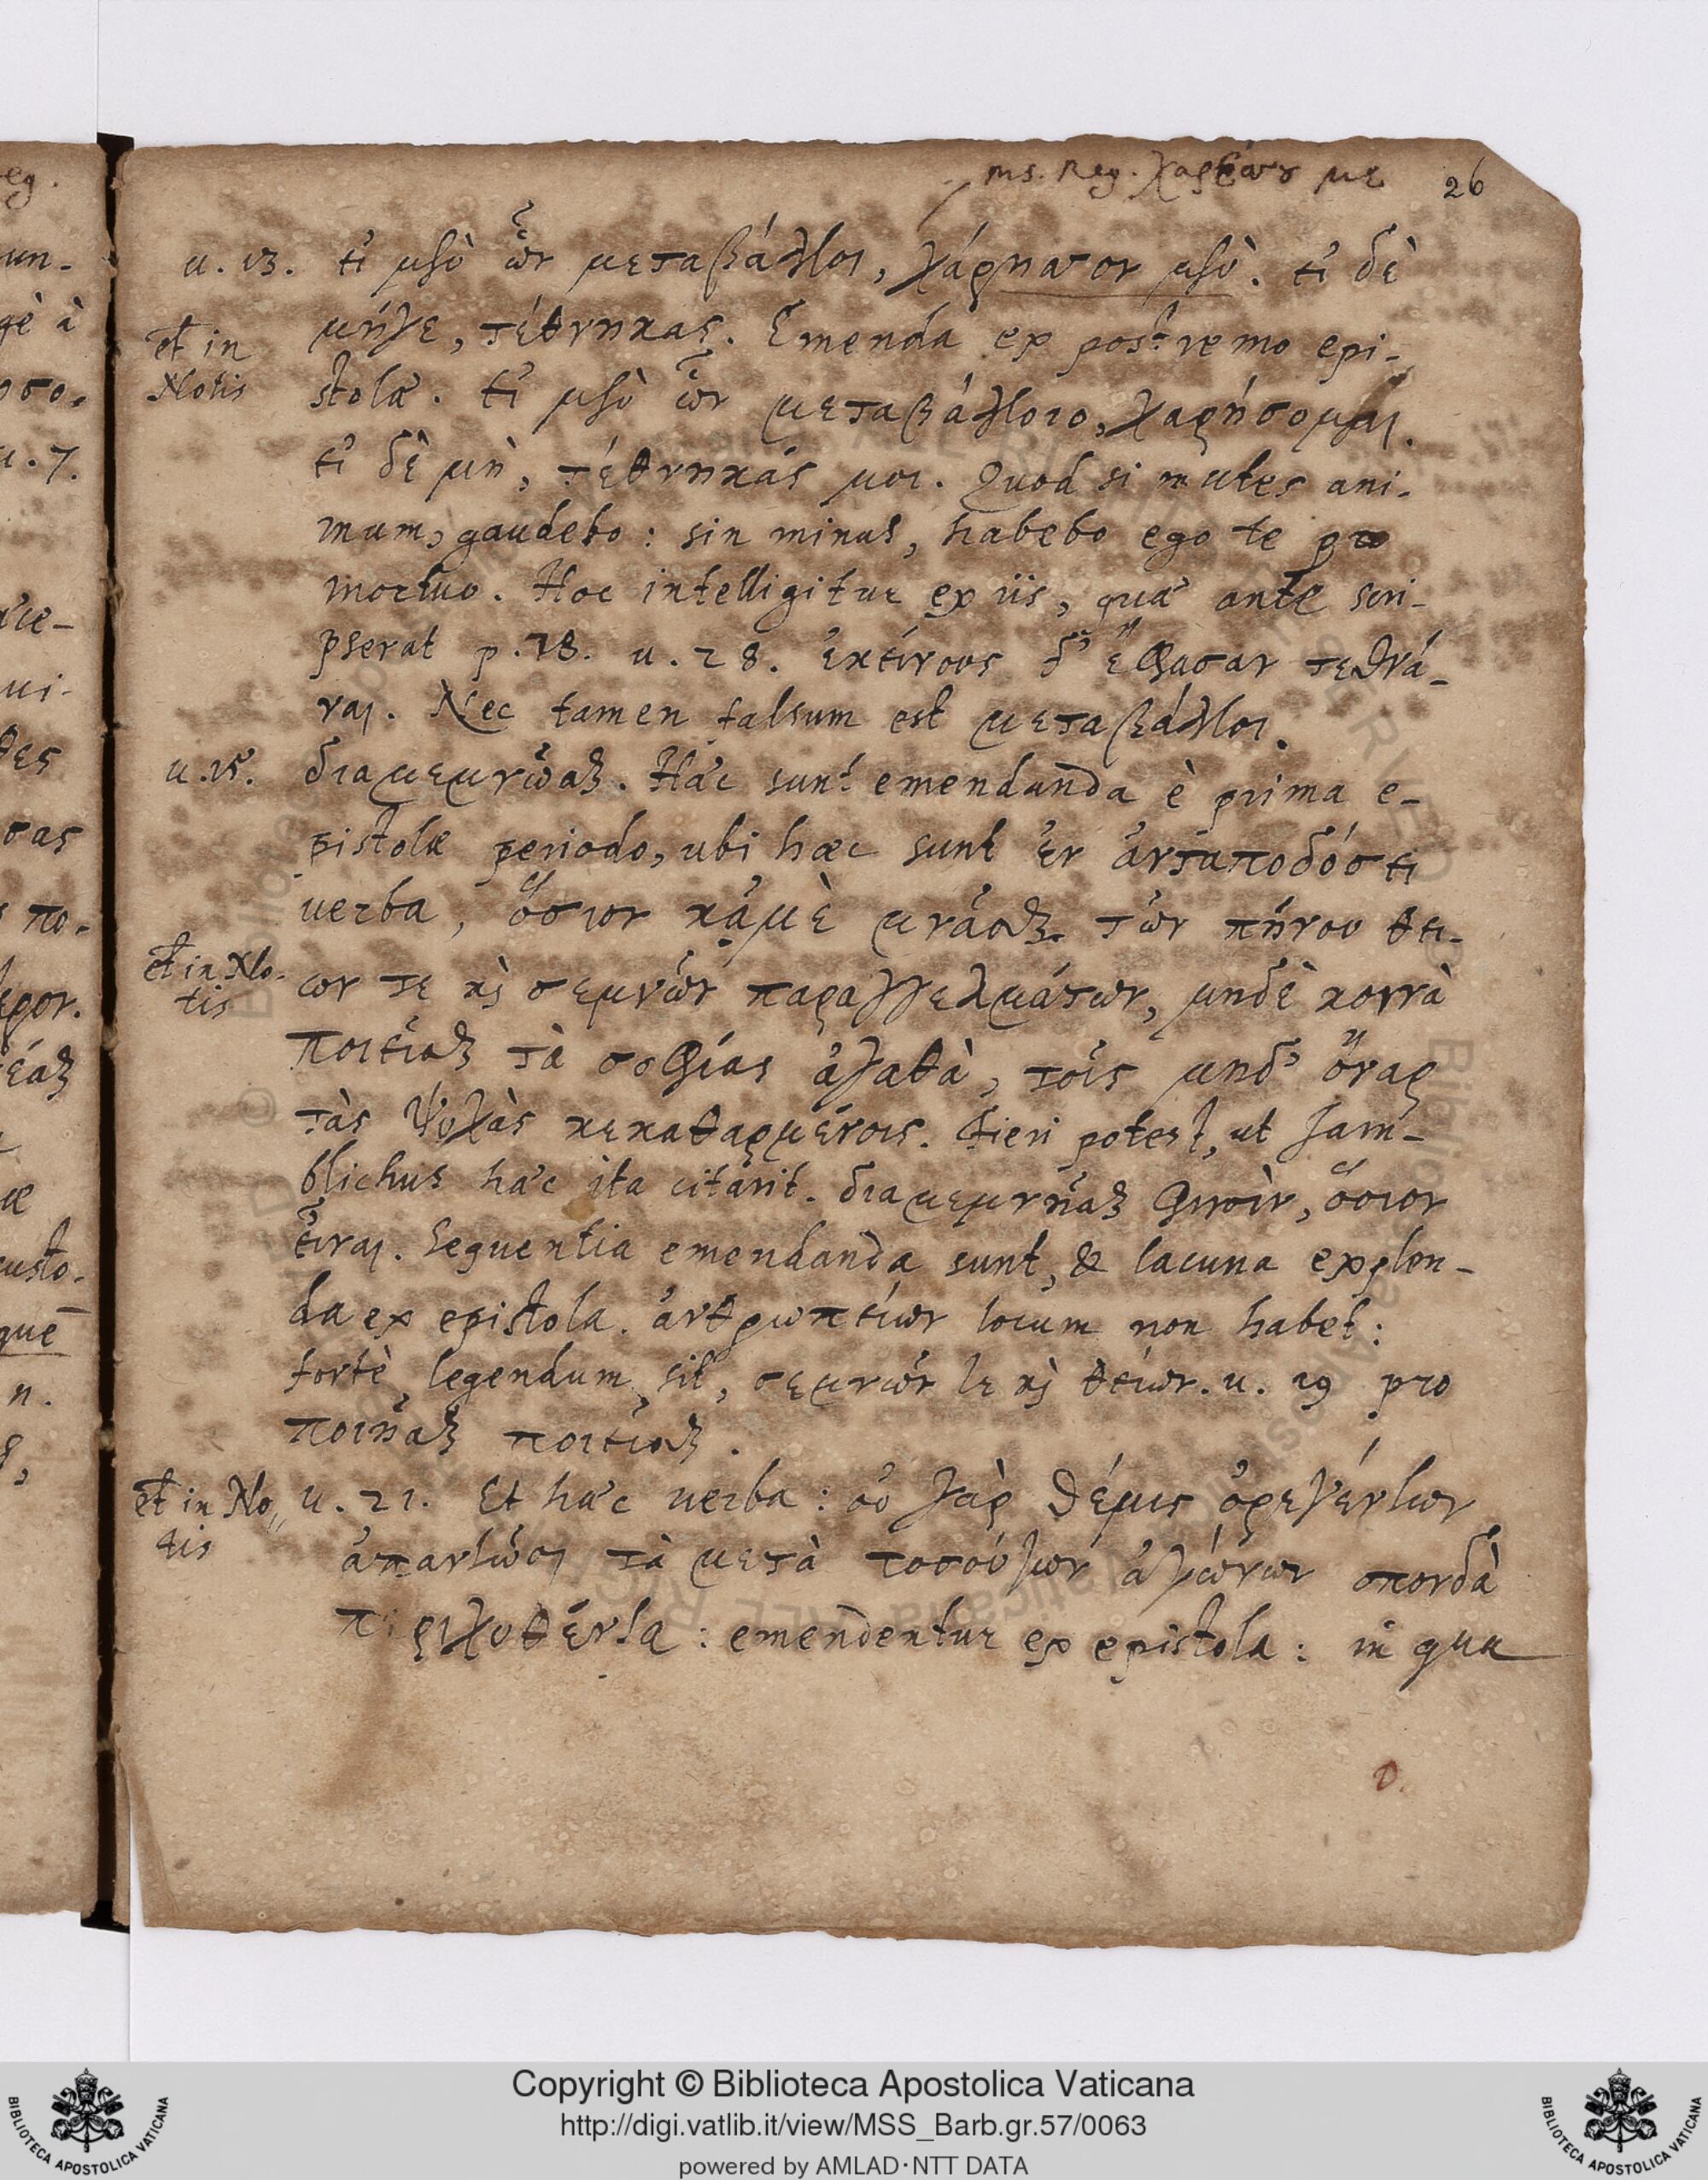 ms. Reg. 26
u. 13. εἰ μὲν ὦν μεταβάλλοι, χάρησον μὲν. εἰ δὲ
et in Notis
μήγε, τέθνηκας. Emenda ex postremo epi-
stolæ. εἰ μὲν ὦν μεταβάλλοιο, χαρήσομαι.
εἰ δὲ μὴ, τέθνηκάς μοι. Quod si mutes ani-
mum, gaudebo: sin minus, habebo ego te pro
mortuo. Hoc intelligitur ex iis, quæ ante scri-
pserat p. 78. u. 28. ἐκείνους δ' ἔφασαν τεθνά-
ναι. Nec tamen falsum est μεταβάλλοι.
u. 15. διαμεμνᾶσθαι. Hæc sunt emendanda è prima e-
pistolæ periodo, ubi hæc sunt ἐν ἀνταποδόσει
verba, ὅσιον κἀμὲ μνάσθαι τῶν τήνου θεί-
et in No-
tis
ων τε καὶ σεμνῶν παραγγελμάτων, μηδὲ κοινὰ
ποιεῖσθαι τὰ σοφίας ἀγαθὰ, τοῖς μηδ' ὄναρ
τὰς ψυχὰς κεκαθαρμένοις. Fieri potest, ut Jam-
blichus hæc ita citarit. διαμεμνῆσθαι φησὶν, ὅσιον
εἶναι. Sequentia emendanda sunt, & lacuna explen-
da ex epistola. ἀνθρωπείων locum non habet:
fortè legendum sit, σεμνῶν τε καὶ θείων. u. 19 pro
ποιῆσθαι ποιεῖσθαι.
et in No-
tis
u. 21. Et hæc verba: οὐ γὰρ θέμις ὀρεγέντων
ἀπαντῶσι τὰ μετὰ τοσούτων ἀγώνων σπουδᾷ
περιχυθέντα: emendentur ex epistola: in qua
Copyright © Biblioteca Apostolica Vaticana
http://digi.vatlib.it/view/MSS_Barb.gr.57/0063
powered by AMLAD·NTT DATA